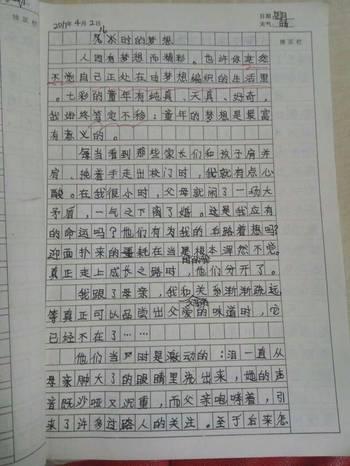 2019年4月2日
日期
天气 晴
儿时的梦想
人因有梦想而精彩。也许你浑然
不觉自己正处在由梦想编织的生活里
。七彩的童年有纯真、天真、好奇,
我始终笃定不移:童年的梦想是最富
有意义的。
每当看到那些家长们和孩子肩并
肩、挽着手走出校门时,我就有点心
酸。在我很小时,父母就闹了一场大
矛盾,一气之下离了婚。这是我应有
的命运吗?他们有为我的后路着想吗?
迎面扑来的噩耗在当时的我根本浑然不觉。
真正走上成长之路时,他们分开了。
我跟了母亲,我和父亲的关系渐渐疏远,
等真正可以品尝出父爱的味道时,它
已经不在了……
他们当时是激动的:泪一直从
母亲肿大了的眼睛里流出来,她的声
音既沙哑又沉重,而父亲咆哮着,引
来了许多过路人的关注。至于后来怎